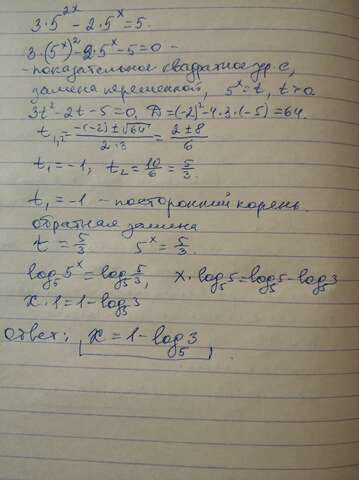 3·5^2x − 2·5^x = 5.
3·(5^x)² − 2·5^x − 5 = 0 −
− показательное квадратное ур. с,
замена переменной, 5^x = t, t > 0
3t² − 2t − 5 = 0, D = (−2)² − 4·3·(−5) = 64.
t₁,₂ = (−(−2) ± √64)/(2·3) = (2 ± 8)/6
t₁ = −1, t₂ = 10/6 = 5/3.
t₁ = −1 − посторонний корень.
обратная замена
t = 5/3 5^x = 5/3.
log₅ 5^x = log₅ 5/3, x·log₅5 = log₅5 − log₅3
x·1 = 1 − log₅3
Ответ: x = 1 − log₅3